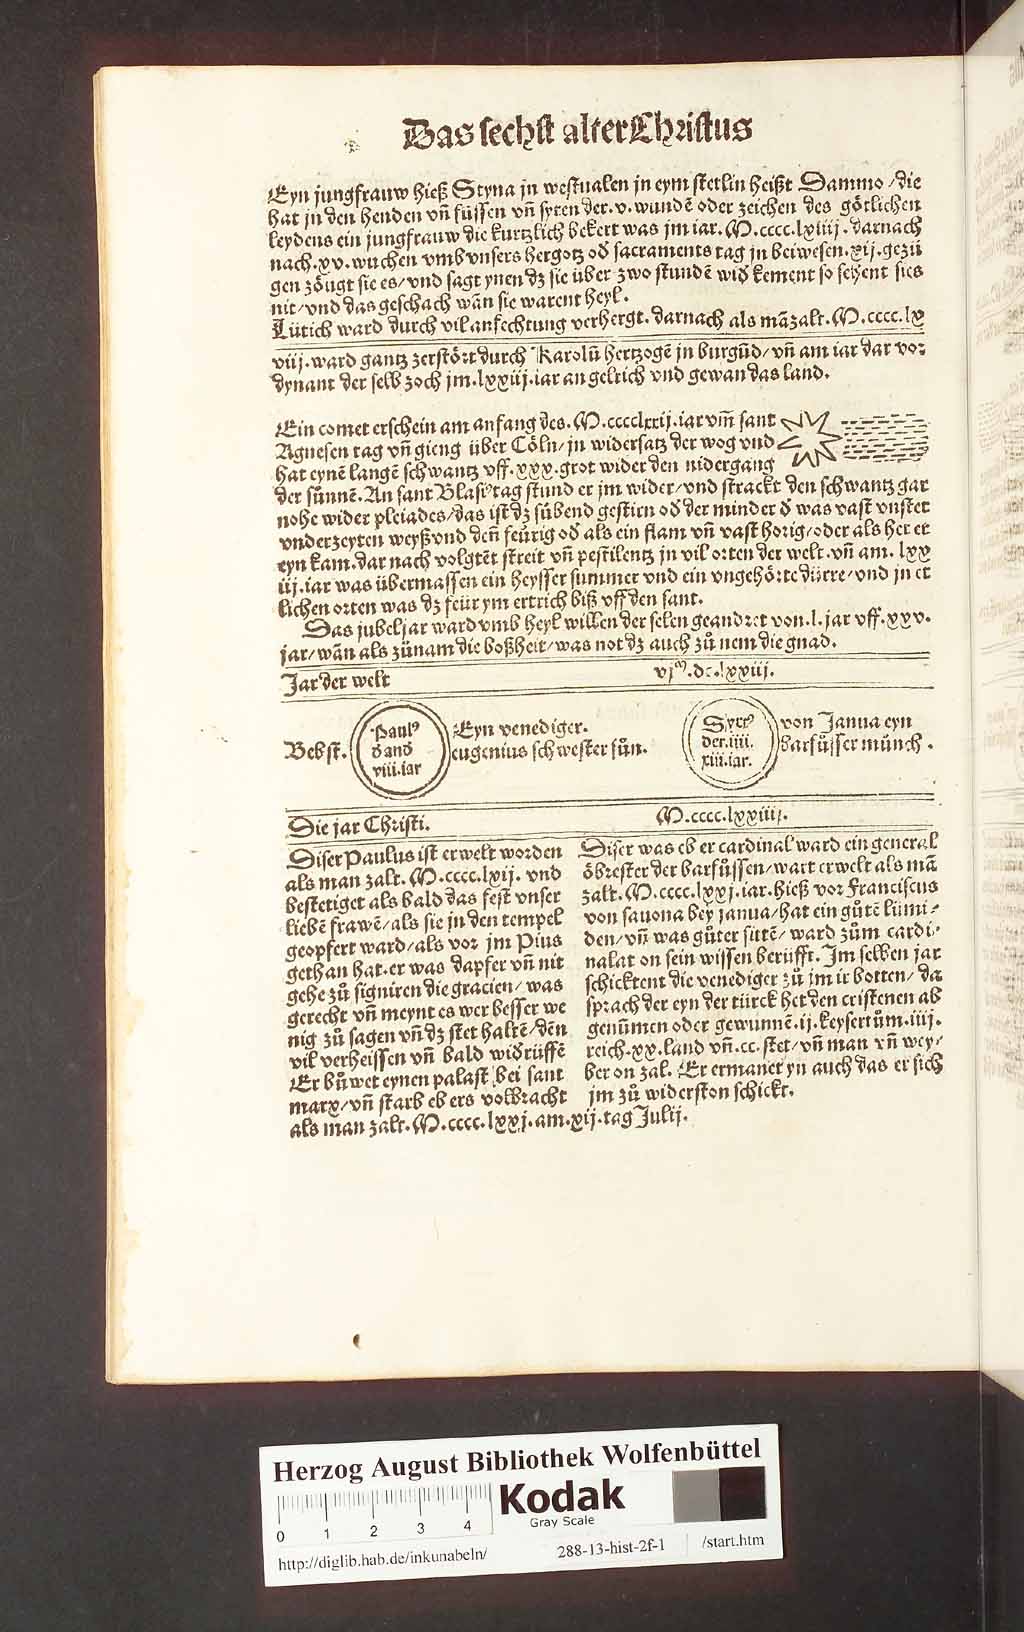 Das sechst alter Christus
Eyn jungfrauw hieß Styna jn westualen jn eym stetlin heißt Dammo / die
hat jn den henden vñ füssen vñ syten der .v. wundē oder zeichen des götlichen
leydens ein jungfrauw die kurtzlich bekert was jm iar. M.cccc.lxiiij. darnach
nach .xv. wuchen vmb vnsers hergotz od sacraments tag jn beiwesen .xij. gezü
gen zöugt sie es / vnd sagt ynen dz sie über zwo stundē wid kement so sehent sies
nit / vnd das geschach wān sie warent heyl.
Lütich ward durch vil anfechtung verhergt. darnach als mā zalt. M.cccc.lx
viij. ward gantz zerstört durch Karolū hertzogē jn burgūd / vñ am iar dar vor
dynant der selb zoch jm .lxxiij. iar an gelrich vnd gewan das land.
Ein comet erschein am anfang des. M.cccclxxij. iar vm̄ sant
Agnesen tag vñ gieng über Cöln / jn widersatz der wog vnd
hat eynē langē schwantz vff .xxx. grot wider den nidergang
der sunnē. An sant Blasiꝰ tag stund er jm wider / vnd strackt den schwantz gar
nohe wider pleiades / das ist dz sübend gestirn od der minder d was vast vnstet
vnderzeyten weyß vnd den̄ feürig od als ein flam vñ vast horig / oder als her er
eyn kam. dar nach volgtēt streit vñ pestilentz jn vil orten der welt. vñ am .lxx
iij. iar was übermassen ein heysser summer vnd ein vngehörte dürre / vnd jn et
lichen orten was dz feür ym ertrich biß vff den sant.
Das jubeljar ward vmb heyl willen der selen geandret von .l. jar vff .xxv.
jar / wān als zünam die boßheit / was not dz auch zů nem die gnad.
Jar der welt vjᵐ.dc.lxxiij.
Bebst. Paulꝰ d and viij. iar Eyn venediger. eugenius schwester sůn.
Syxtꝰ der .iiij. xiij. iar. von Janua eyn barfůsser münch.
Die jar Christi. M.cccc.lxxiiij.
Diser Paulus ist erwelt worden
als man zalt. M.cccc.lxij. vnd
bestetiget als bald das fest vnser
liebē frawē / als sie jn den tempel
geopfert ward / als vor jm Pius
gethan hat. er was dapfer vñ nit
gehe zů signiren die gracien / was
gerecht vñ meynt es wer besser we
nig zů sagen vñ dz stet haltē / dēn
vil verheissen vñ bald widrüffē
Er bůwet eynen palast bei sant
marx / vñ starb eb ers volbracht
als man zalt. M.cccc.lxxj. am .xij. tag Julij.
Diser was eb er cardinal ward ein general
öbrester der barfůssen / wart erwelt als mā
zalt. M.cccc.lxxj. iar. hieß vor Franciscus
von sauona bey janua / hat ein gůtē lümi-
den / vñ was gůter sittē / ward zům cardi-
nalat on sein wissen berüfft. Im selben jar
schicktent die venediger zů jm ir botten / da
sprach der eyn der türck het den cristenen ab
genūmen oder gewunnē .ij. keysertům .iiij.
reich .xx. land vñ .cc. stet / vñ man vñ wey-
ber on zal. Er ermanet yn auch das er sich
jm zů widerston schickt.
Herzog August Bibliothek Wolfenbüttel
0 1 2 3 4
Kodak
Gray Scale
http://diglib.hab.de/inkunabeln/ 288-13-hist-2f-1 /start.htm